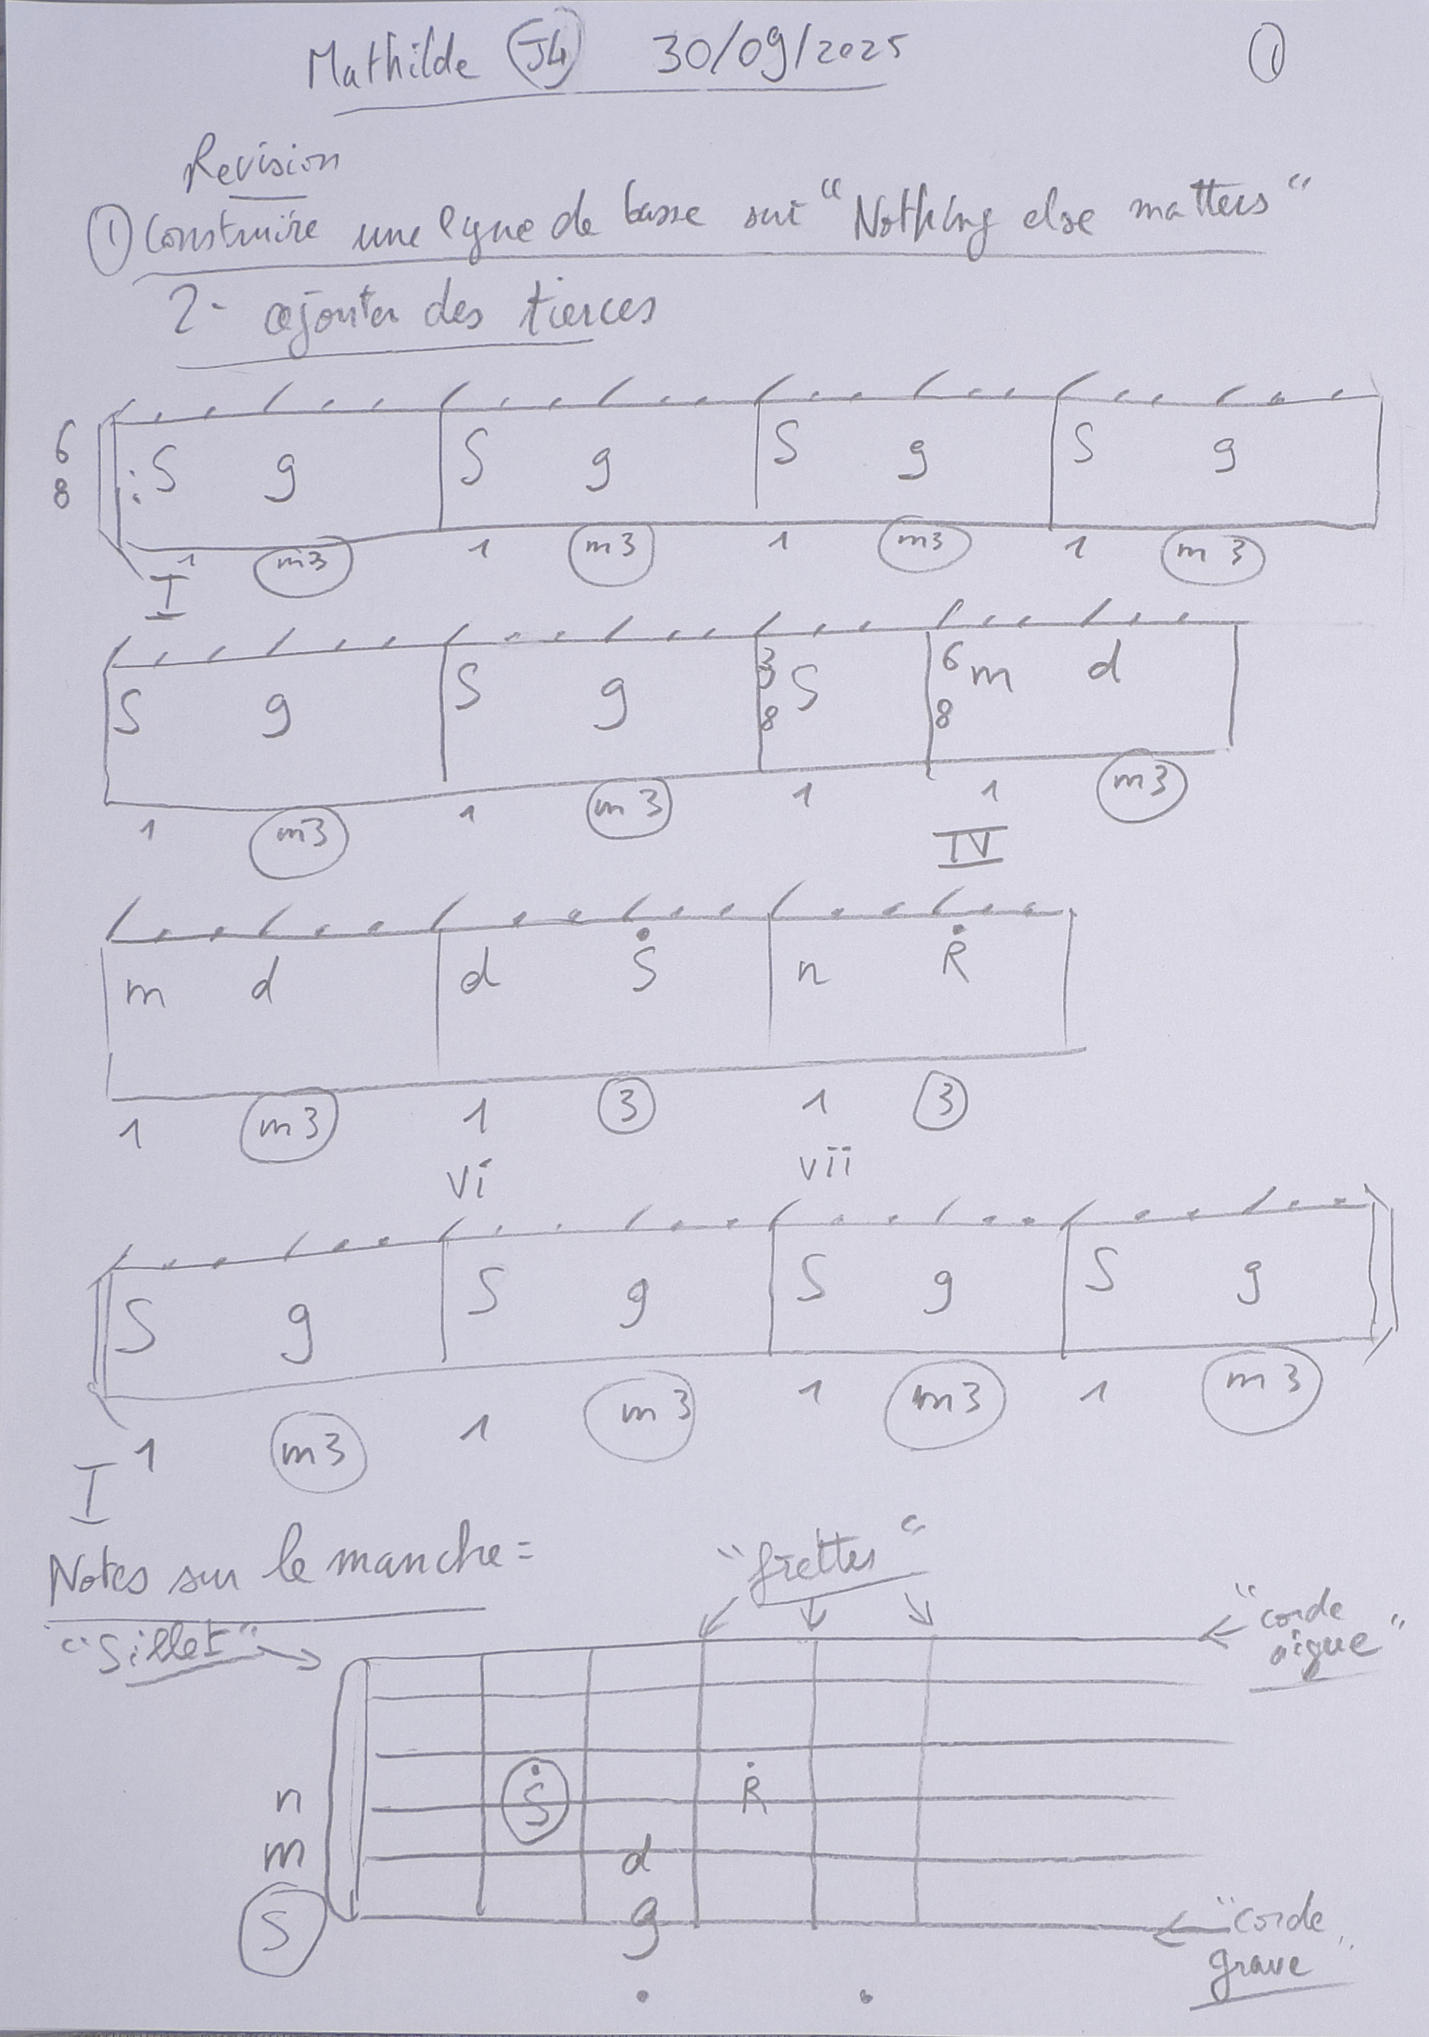 Mathilde J4 30/09/2025 1
Revision
1 Construire une ligne de basse sur "Nothing else matters"
2- ajouter des tierces
6 8 : S g S g S g S g
1 m3 1 m3 1 m3 1 m3
I
S g S g 3 8 S 6 8 m d
1 m3 1 m3 1 1 m3
IV
m d d Ṡ n Ṙ
1 m3 1 3 1 3
vi vii
S g S g S g S g
1 m3 1 m3 1 m3 1 m3
I
Notes sur le manche =
"frettes"
"Sillet"
"corde
aigue"
n Ṡ Ṙ
m d
S g
"corde
grave"